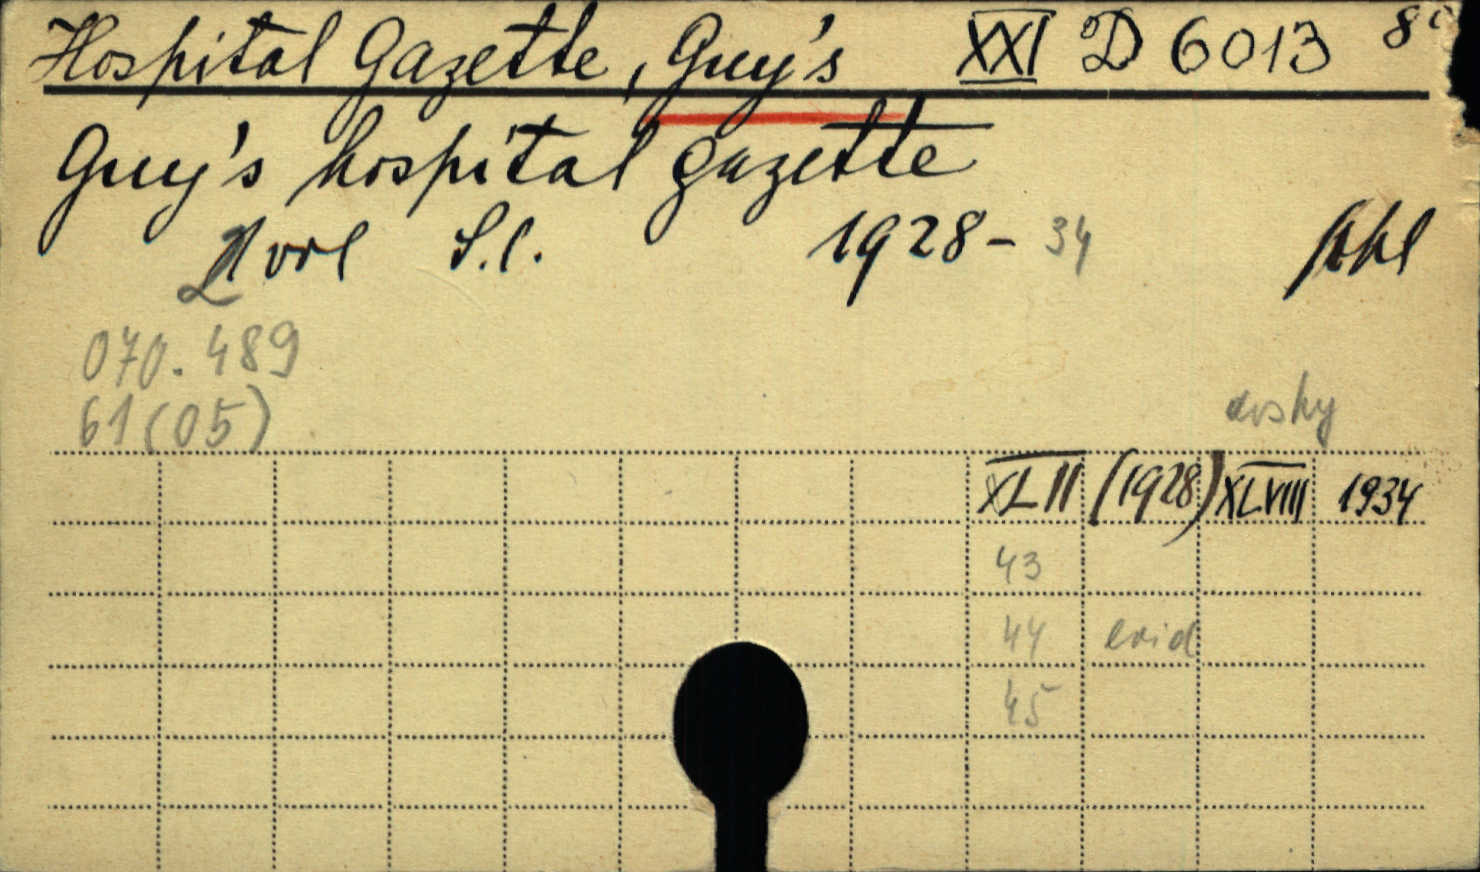 Hospital Gazette, Guy's XXI D 6013 8°
Guy's hospital gazette
S.l. 1928- 34
070.489
61(05)
desky
XLII (1928) XLVIII 1934
43
44 evid
45